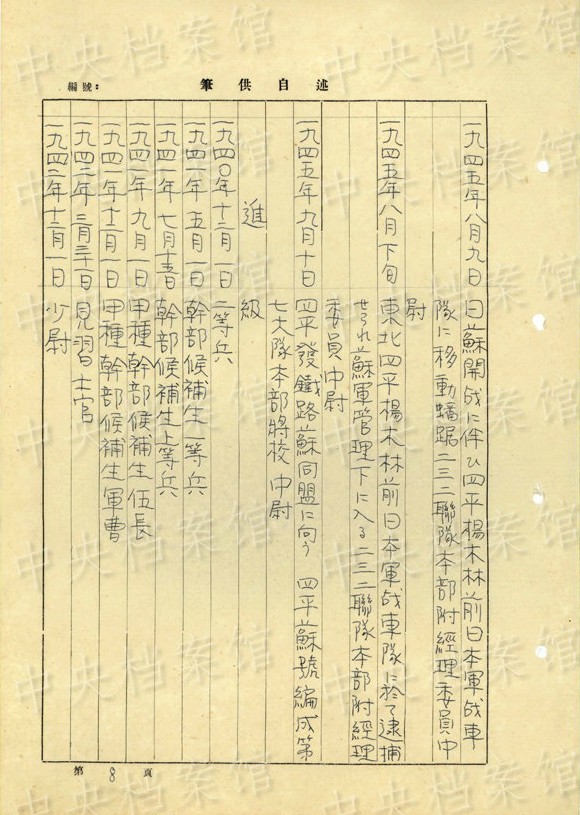 中央档案馆
編號:
筆供自述
一九四五年八月九日 日蘇開战に伴ひ四平楊木林前日本軍战車
隊に移動蟠踞二三二聯隊本部附経理委員中
尉
一九四五年八月下旬 東北四平楊木林前日本軍战車隊に於て逮捕
せられ蘇軍管理下に入る二三二聯隊本部附經理
委員中尉
一九四五年九月十日 四平發鐵路蘇同盟に向う 四平蘇號編成第
七大隊本部將校 中尉
進級
一九四〇年十二月一日 二等兵
一九四一年五月一日 幹部候補生一等兵
一九四一年七月十五日 幹部候補生上等兵
一九四一年九月一日 甲種幹部候補生伍長
一九四一年十二月一日 甲種幹部候補生軍曹
一九四二年三月三十一日 見習士官
一九四二年十二月一日 少尉
第8頁